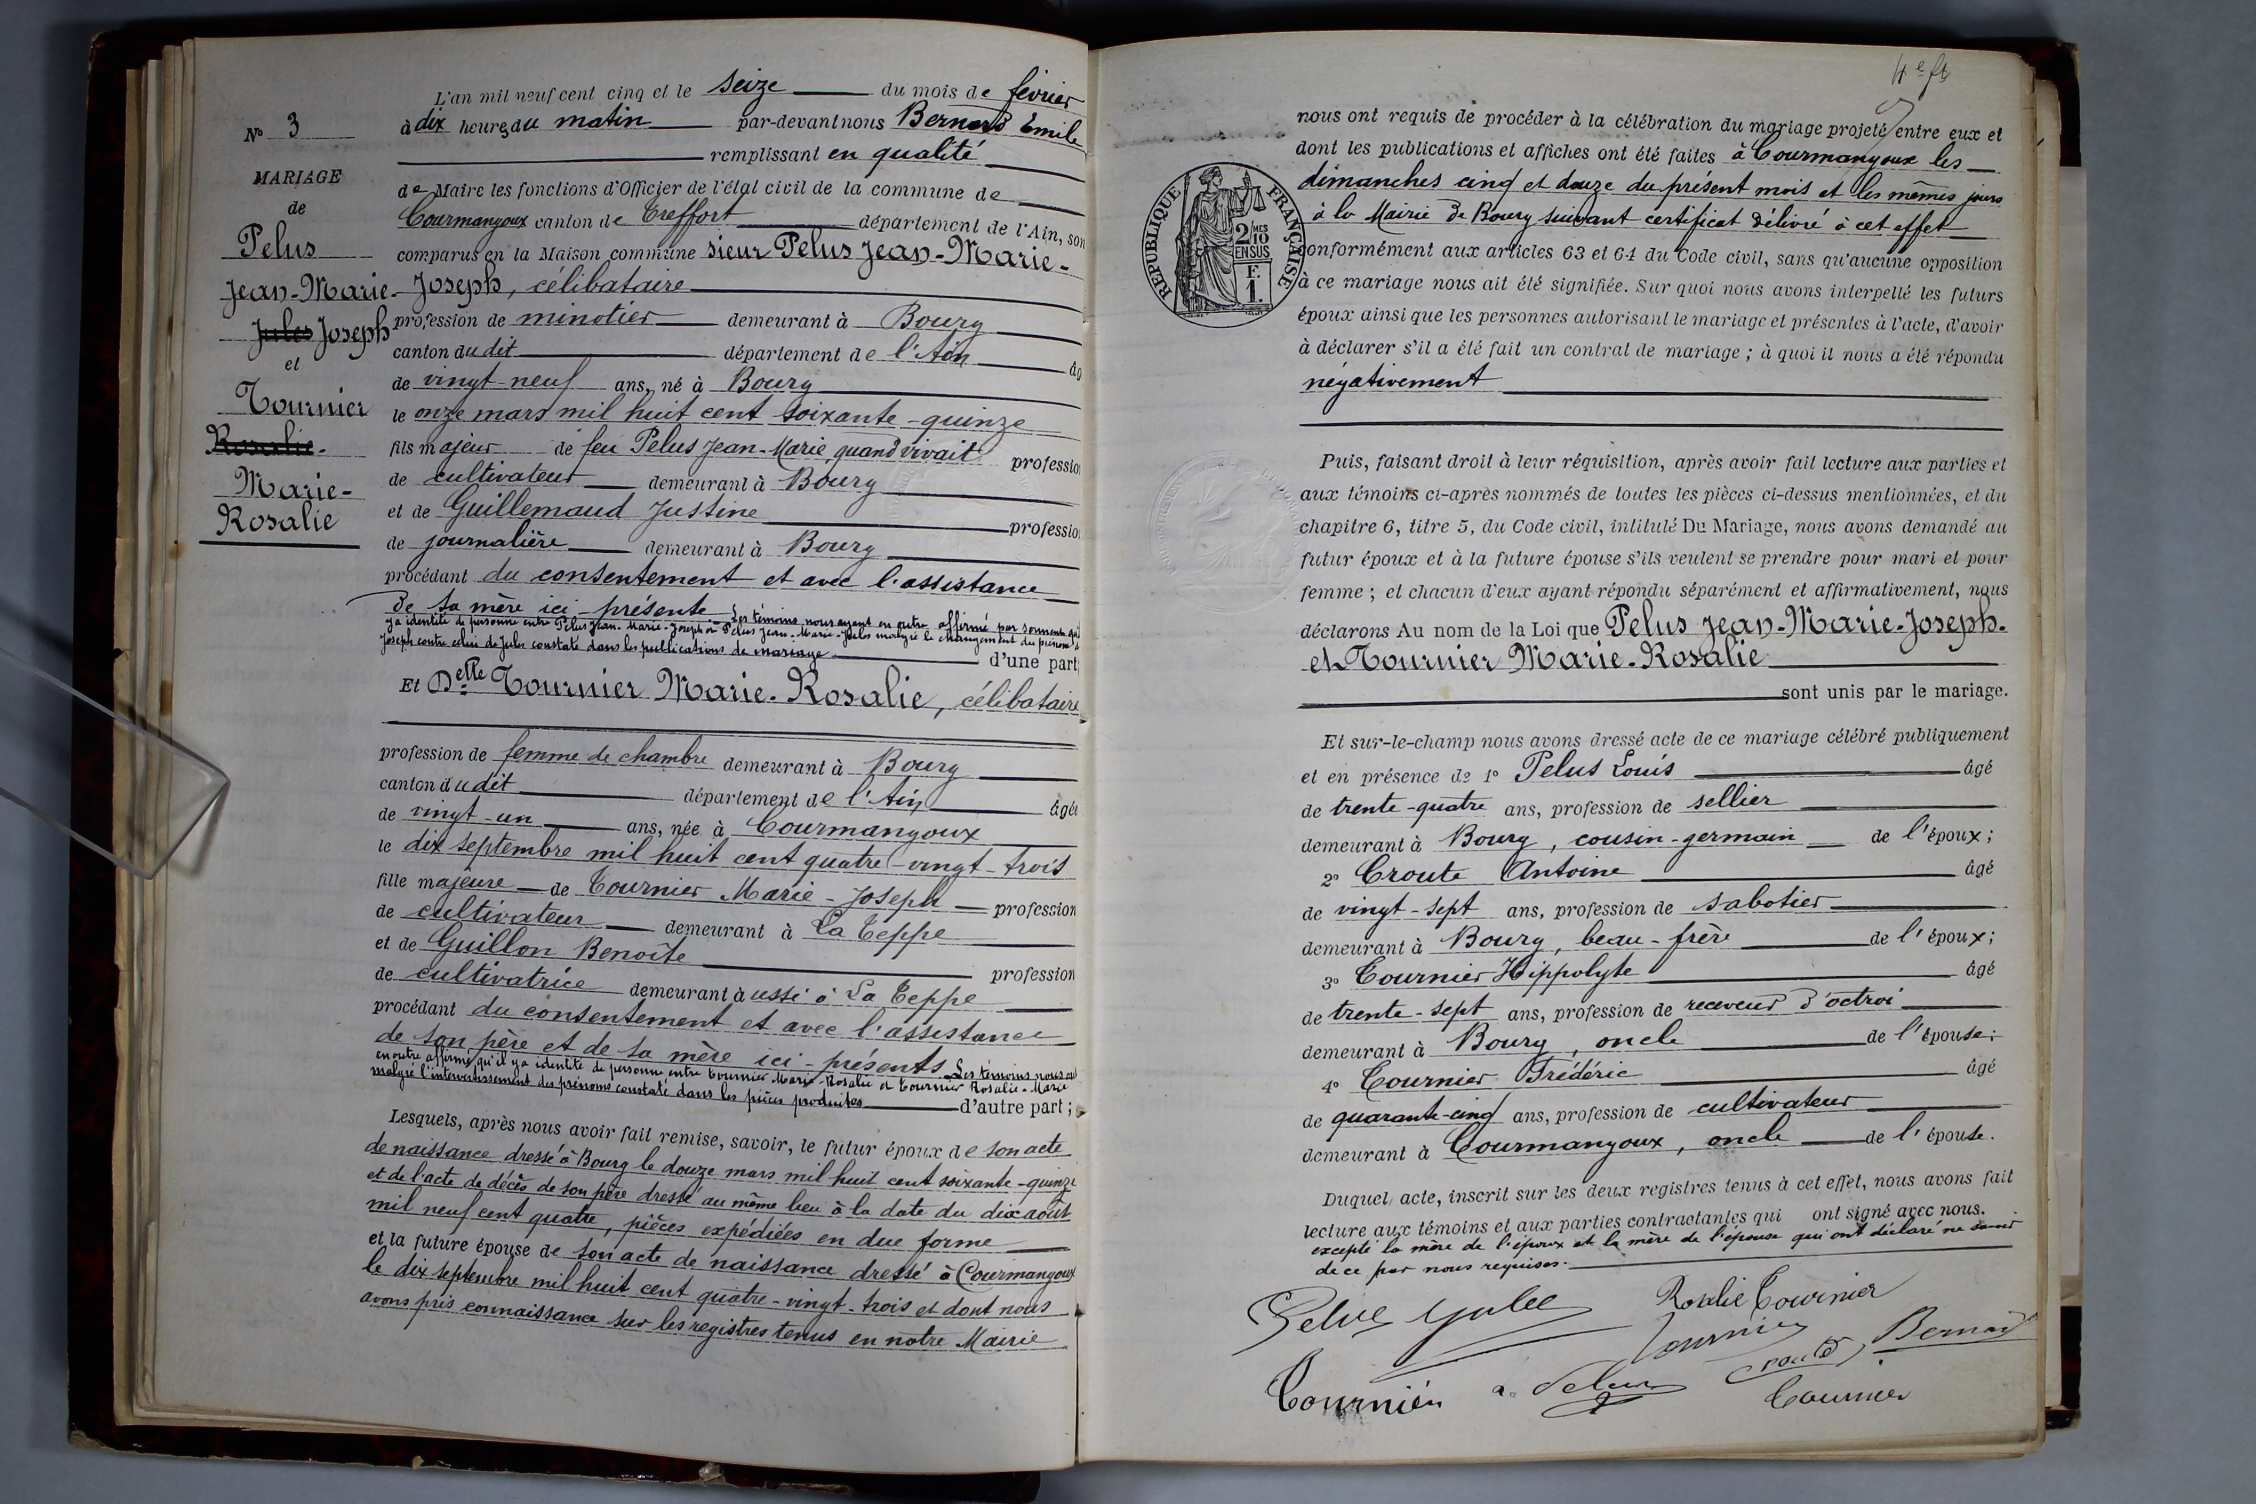 N° 3
MARIAGE
de
Pelus
Jean-Marie-
Jules Joseph
et
Tournier
Rosalie-
Marie-
Rosalie
L'an mil neuf cent cinq et le seize du mois de février
à dix heures du matin par-devant nous Bernard Emile
remplissant en qualité
de Maire les fonctions d'Officier de l'état civil de la commune de
Courmangoux canton de Treffort département de l'Ain, son
comparus en la Maison commune sieur Pelus Jean-Marie-
Joseph, célibataire
profession de minotier demeurant à Bourg
canton du dit département de l'Ain âg
de vingt-neuf ans, né à Bourg
le onze mars mil huit cent soixante-quinze
fils majeur de feu Pelus Jean-Marie, quand vivait professio
de cultivateur demeurant à Bourg
et de Guillemaud Justine professio
de journalière demeurant à Bourg
procédant du consentement et avec l'assistance
de sa mère ici-présente. Les témoins nous ayant en outre affirmé par serment qu'il
y a identité de personne entre Pelus Jean-Marie-Joseph et Pelus Jean-Marie-Jules malgré le changement du prénom de
Joseph contre celui de Jules constaté dans les publications de mariage d'une part;
Et Delle Tournier Marie-Rosalie, célibataire
profession de femme de chambre demeurant à Bourg
canton dudit département de l'Ain âgée
de vingt-un ans, née à Courmangoux
le dix septembre mil huit cent quatre-vingt-trois
fille majeure de Tournier Marie-Joseph profession
de cultivateur demeurant à La Teppe
et de Guillon Benoîte profession
de cultivatrice demeurant aussi à La Teppe
procédant du consentement et avec l'assistance
de son père et de sa mère ici-présents. Les témoins nous ont
en outre affirmé qu'il y a identité de personne entre Tournier Marie-Rosalie et Tournier Rosalie-Marie
malgré l'intervertissement des prénoms constaté dans les pièces produites d'autre part;
Lesquels, après nous avoir fait remise, savoir, le futur époux de son acte
de naissance dressé à Bourg le douze mars mil huit cent soixante-quinze
et de l'acte de décès de son père dressé au même lieu à la date du dix août
mil neuf cent quatre, pièces expédiées en due forme
et la future épouse de son acte de naissance dressé à Courmangoux
le dix septembre mil huit cent quatre-vingt-trois et dont nous
avons pris connaissance sur les registres tenus en notre Mairie
4e ft
nous ont requis de procéder à la célébration du mariage projeté entre eux et
dont les publications et affiches ont été faites à Courmangoux les
dimanches cinq et douze du présent mois et les mêmes jours
à la Mairie de Bourg suivant certificat délivré à cet effet
conformément aux articles 63 et 64 du Code civil, sans qu'aucune opposition
à ce mariage nous ait été signifiée. Sur quoi nous avons interpellé les futurs
époux ainsi que les personnes autorisant le mariage et présentes à l'acte, d'avoir
à déclarer s'il a été fait un contrat de mariage; à quoi il nous a été répondu
négativement
RÉPUBLIQUE FRANÇAISE
2/10 MES
EN SUS
F.
1.
Puis, faisant droit à leur réquisition, après avoir fait lecture aux parties et
aux témoins ci-après nommés de toutes les pièces ci-dessus mentionnées, et du
chapitre 6, titre 5, du Code civil, intitulé Du Mariage, nous avons demandé au
futur époux et à la future épouse s'ils veulent se prendre pour mari et pour
femme; et chacun d'eux ayant répondu séparément et affirmativement, nous
déclarons Au nom de la Loi que Pelus Jean-Marie-Joseph.
et Tournier Marie-Rosalie
sont unis par le mariage.
Et sur-le-champ nous avons dressé acte de ce mariage célébré publiquement
et en présence de 1° Pelus Louis âgé
de trente-quatre ans, profession de sellier
demeurant à Bourg, cousin-germain de l'époux;
2° Croute Antoine âgé
de vingt-sept ans, profession de sabotier
demeurant à Bourg, beau-frère de l'époux;
3° Tournier Hippolyte âgé
de trente-sept ans, profession de receveur d'octroi
demeurant à Bourg, oncle de l'épouse;
4° Tournier Frédéric âgé
de quarante-cinq ans, profession de cultivateur
demeurant à Courmangoux, oncle de l'épouse.
Duquel acte, inscrit sur les deux registres tenus à cet effet, nous avons fait
lecture aux témoins et aux parties contractantes qui ont signé avec nous.
excepté la mère de l'époux et la mère de l'épouse qui ont déclaré ne savoir
de ce par nous requises.
Pelus Jules Rosalie Tournier
Tournier Croute Bernard
Tournier Pelus Tournier